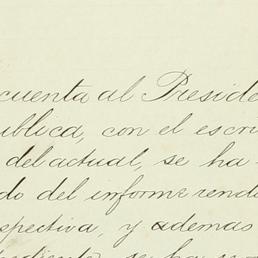 cuenta al Preside
ública, con el escri
del actual, se ha
do del informe rende
spectiva, y además